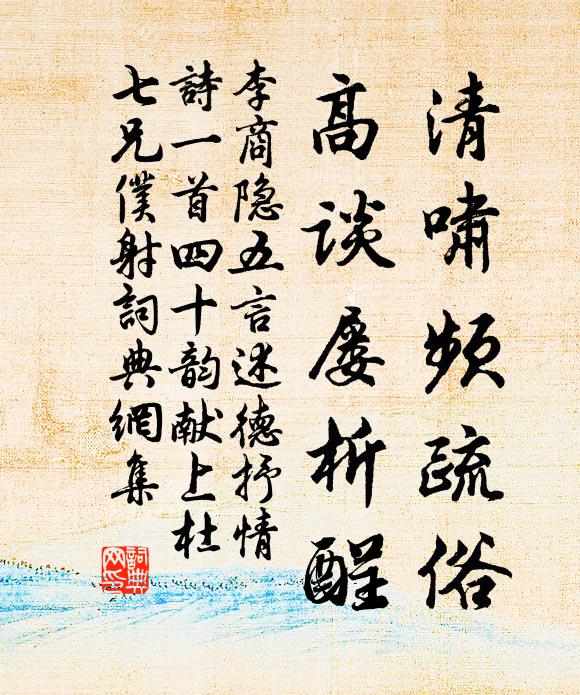 清嘯频疏俗
高谈屡析醒
李商隐五言述德抒情
詩一首四十韵献上杜
七兄僕射詞典網集